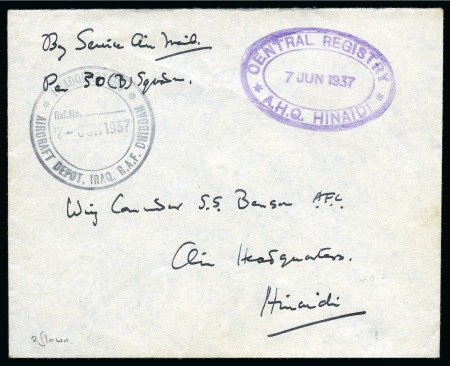 By Service Air Mail.
Per 30(B) Squadn.
HEADQUARTERS
Ref.No.
7-JUN 1937
* AIRCRAFT DEPOT, IRAQ, R.A.F. DHIBBAN *
CENTRAL REGISTRY
7 JUN 1937
* A.H.Q. HINAIDI *
Wing Commander S.S. Benson A.F.C.
Air Headquarters.
Hinaidi
flown.